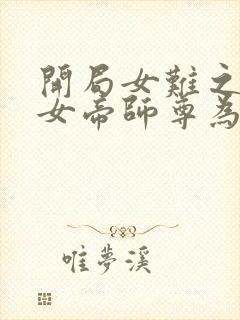 開局女難之
女帝師尊為
唯夢溪